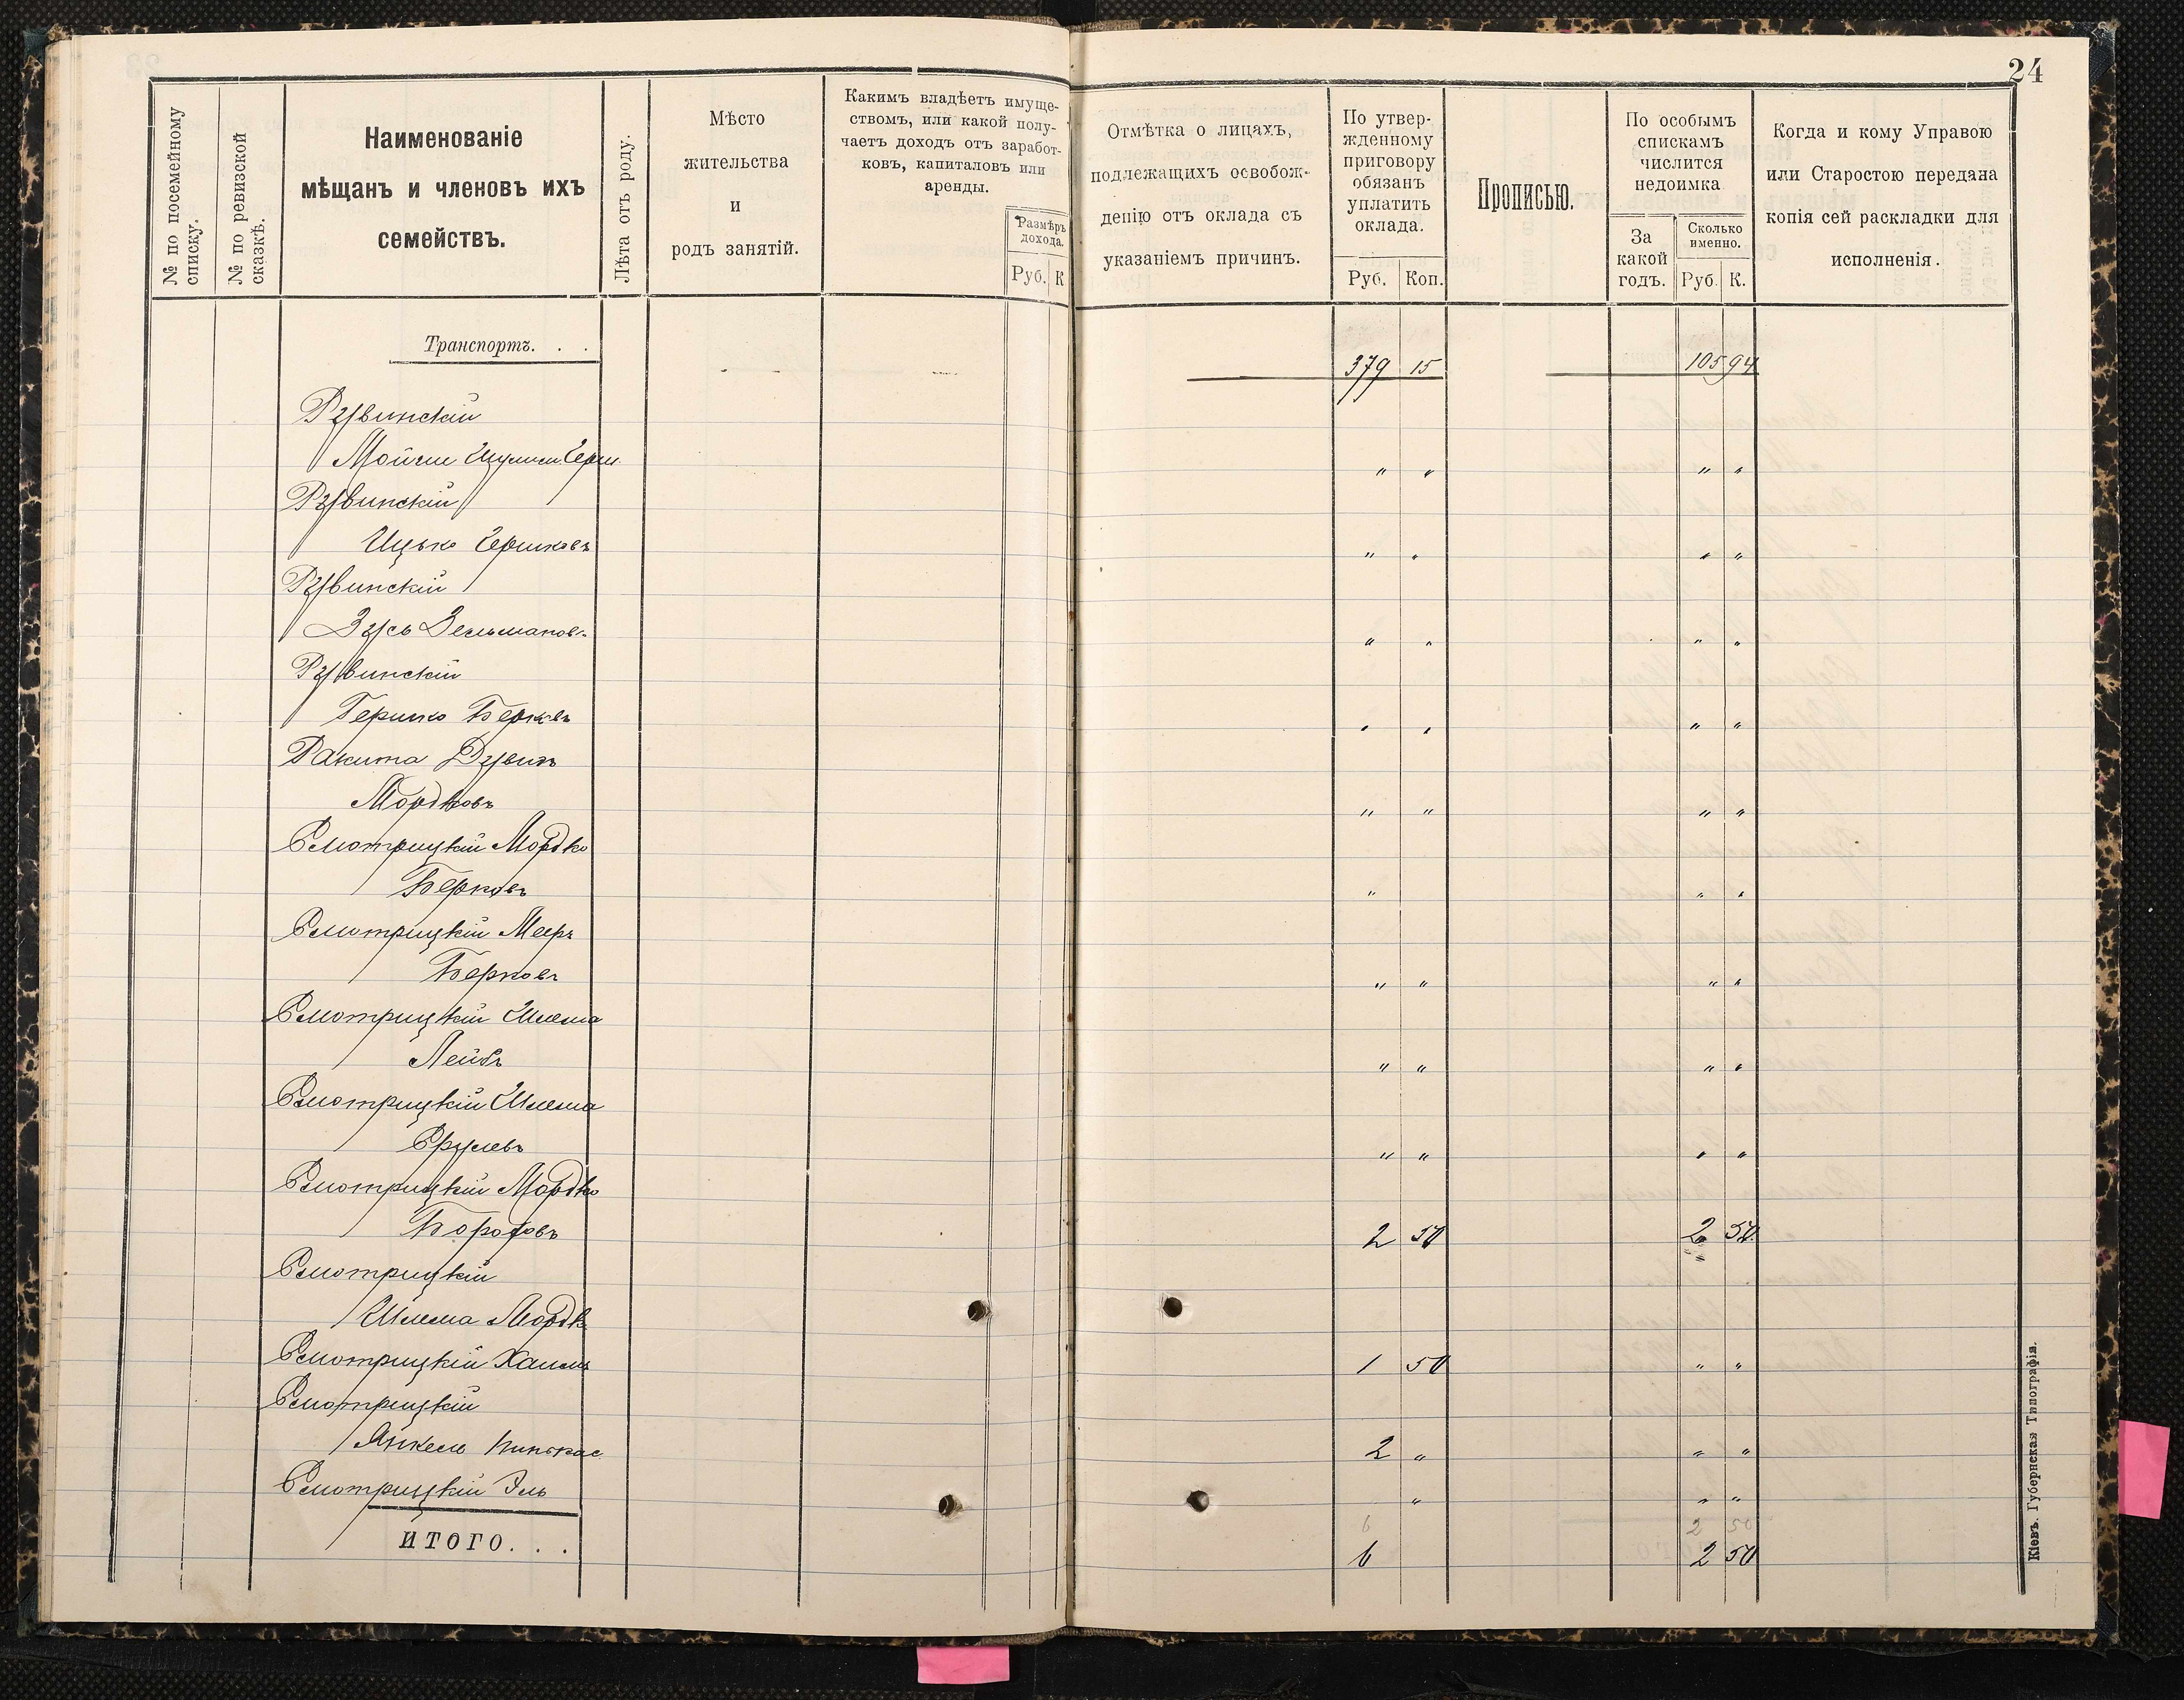 24
№ по посемейному
списку.
№ по ревизской
сказкѣ.
Наименованіе
мѣщанъ и членовъ ихъ
семействъ.
Лѣта отъ роду.
Мѣсто
жительства
и
родъ занятій.
Какимъ владѣетъ имуще-
ствомъ, или какой полу-
чаетъ доходъ отъ заработ-
ковъ, капиталовъ или
аренды.
Размѣръ
дохода.
Руб. К
Отмѣтка о лицахъ,
подлежащихъ освобож-
денію отъ оклада съ
указаніемъ причинъ.
По утвер-
жденному
приговору
обязанъ
уплатить
оклада.
Руб. Коп.
Прописью.
По особымъ
спискамъ
числится
недоимка
За
какой
годъ.
Сколько
именно.
Руб. К.
Когда и кому Управою
или Старостою передана
копія сей раскладки для
исполненія.
Транспортъ. . . 379 15 105 94
Рувинскій
Мойше " " " "
Рувинскій
Ицько Гершковъ " " " "
Рувинскій
Зусь Зельманов. " " " "
Рувинскій
Гершко Берков " " " "
Ракита Дувидъ
Мордковъ " " " "
Смотрицкій Мордко
Берковъ " " "
Смотрицкій Мееръ
Берковъ " " " "
Смотрицкій Шлема
Лейбъ " " " "
Смотрицкій Шлема
Срулевъ " " " "
Смотрицкій Мордко
Боруховъ 2 50 2 50
Смотрицкій
Шлема Мордк
Смотрицкій Хаимъ 1 50 " "
Смотрицкій
Янкель Пинькас 2 " " "
Смотрицкій Эль " " "
6 2 50
ИТОГО. . . 6 2 50
Кіевъ. Губернская Типографія.